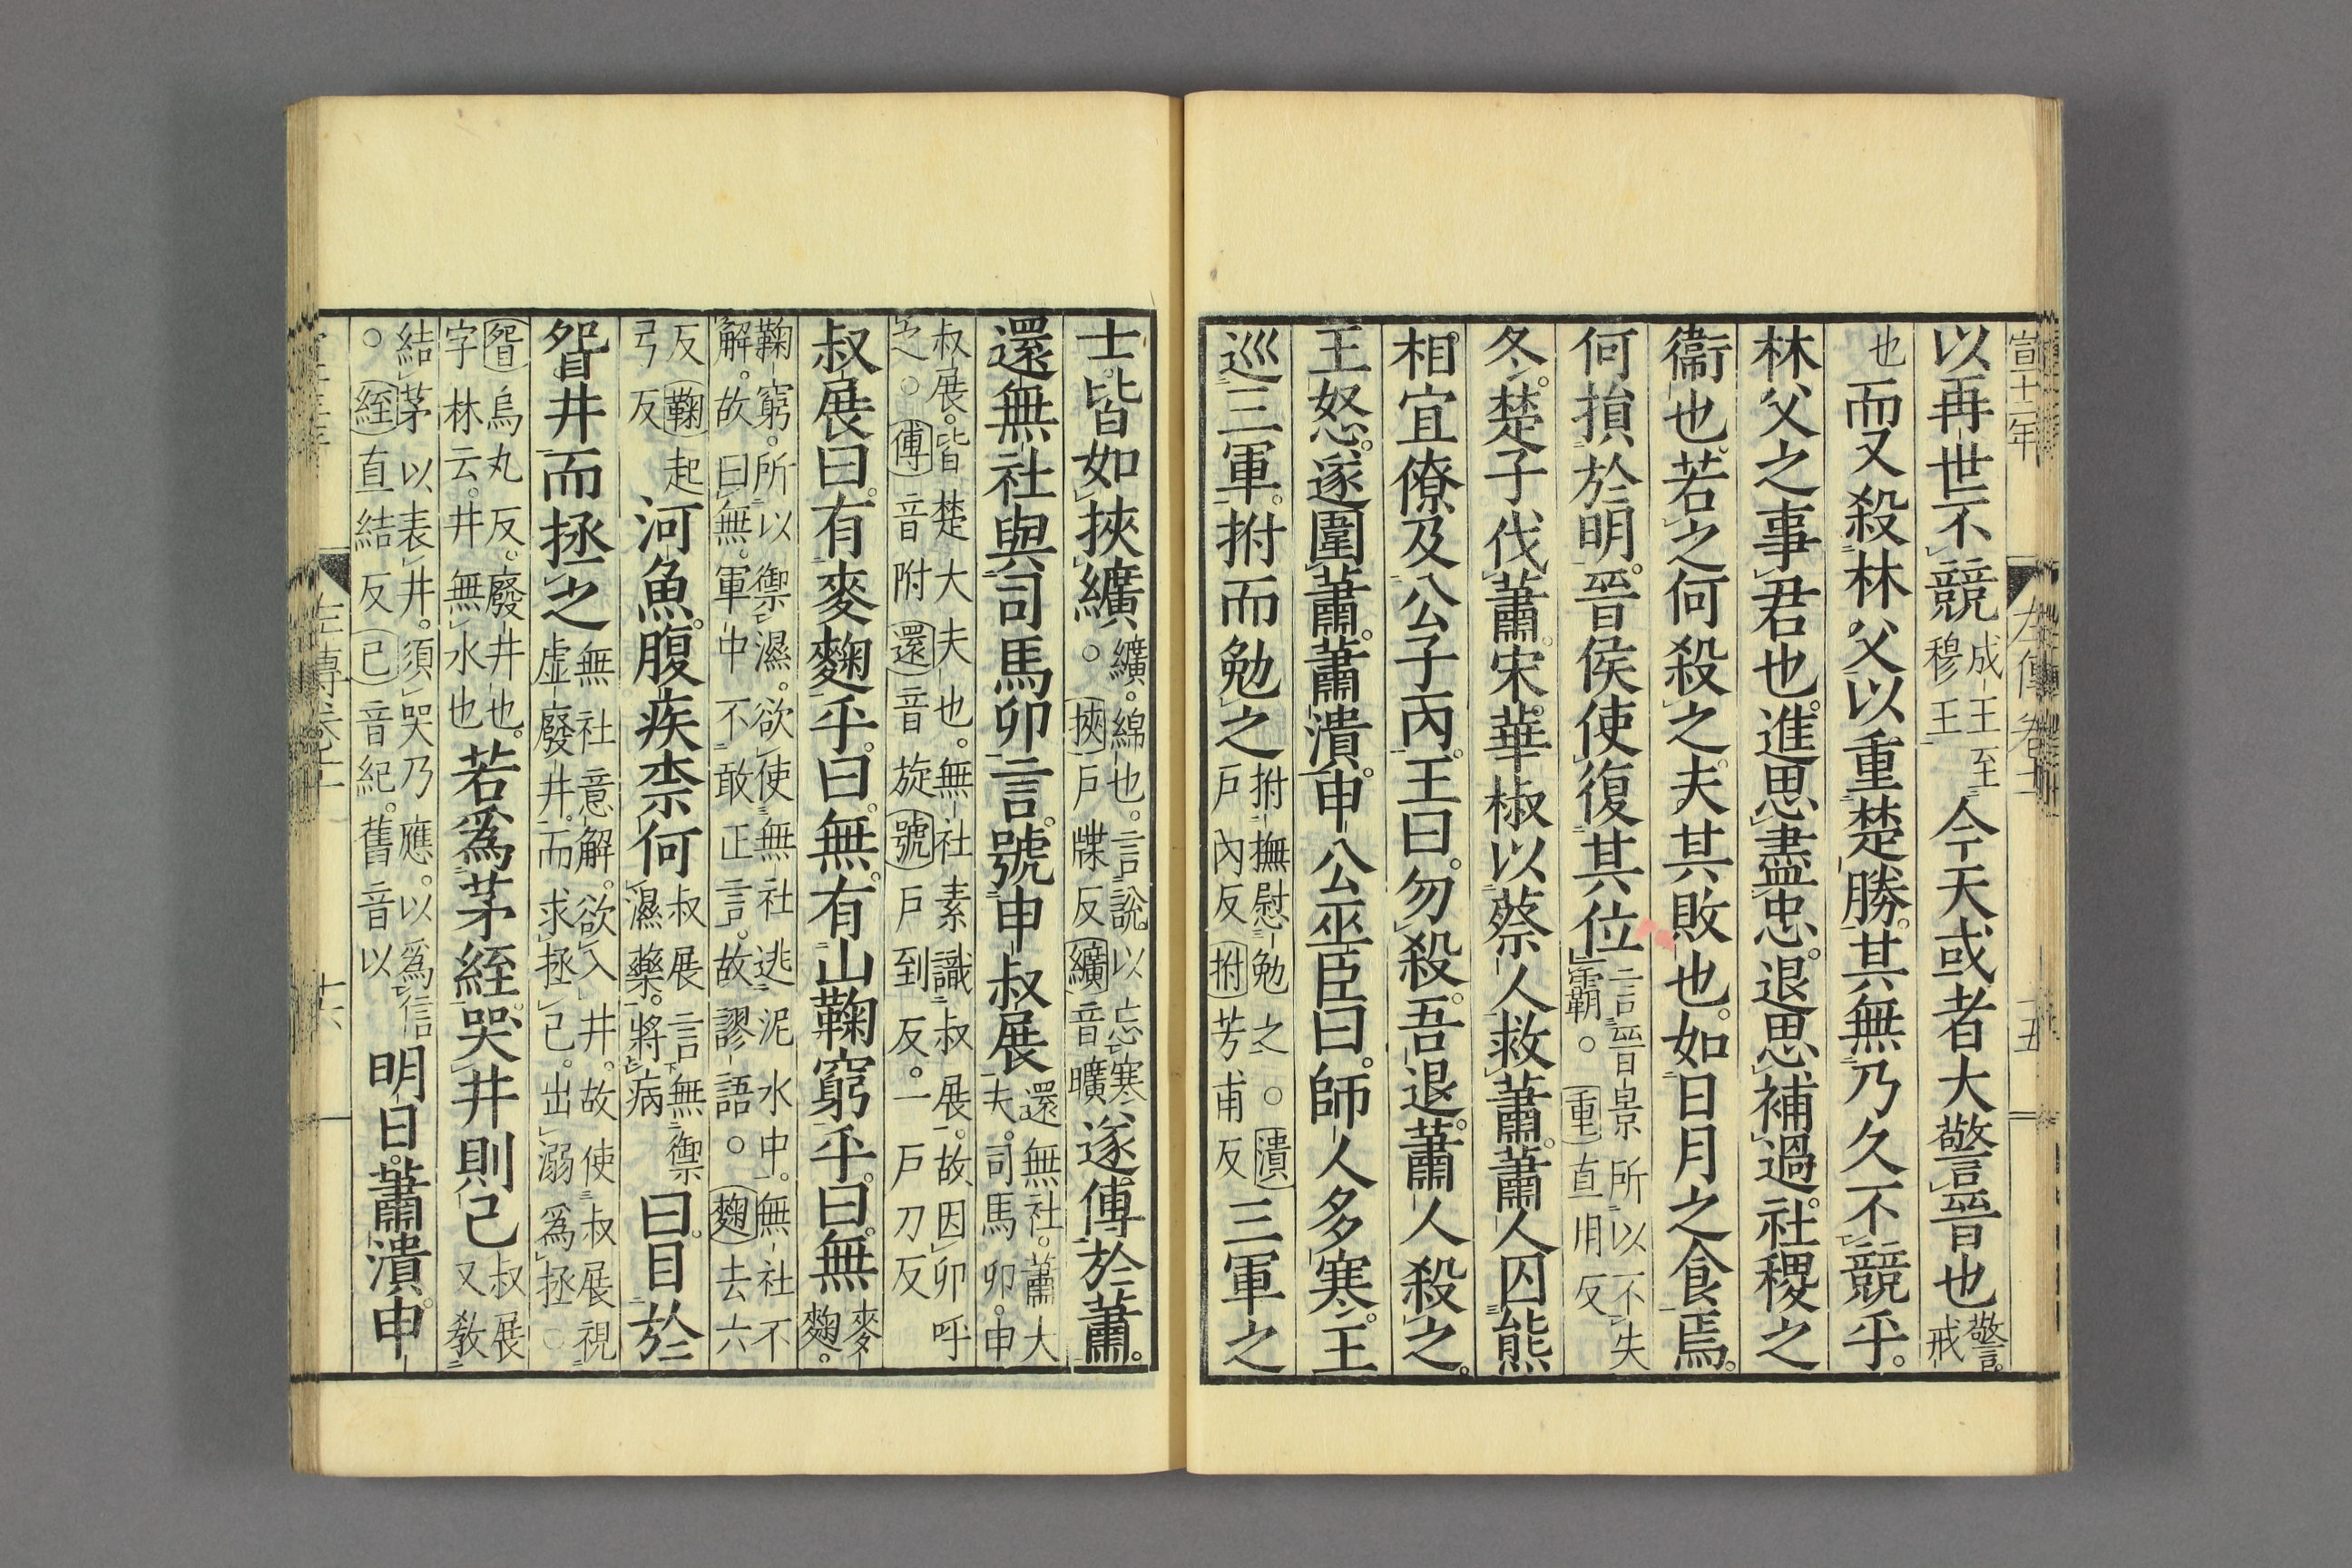 宣十二年
左傳卷十一
以再世不競成王至穆王今天或者大警晉也警。戒
也而又殺林父以重楚勝。其無乃久不競乎。
林父之事君也。進思盡忠。退思補過。社稷之
衞也。若之何殺之。夫其敗也。如日月之食焉。
何損於明。晉侯使復其位言晉景所以不失霸。○重直用反
冬。楚子伐蕭。宋華椒以蔡人救蕭。蕭人囚熊
相宜僚及公子丙。王曰。勿殺。吾退。蕭人殺之。
王怒。遂圍蕭。蕭潰。申公巫臣曰。師人多寒。王
巡三軍。拊而勉之拊撫慰勉之○潰戶內反拊芳甫反三軍之
士。皆如挾纊纊。綿也。言說。以忘寒○挾戶牒反纊音曠遂傅於蕭。
還無社與司馬卯言。號申叔展還無社。蕭大夫。司馬卯。申
叔展。皆楚大夫也。無社素識叔展。故因卯呼之○傅音附還音旋號戶到反。一戶刀反
叔展曰。有麥麴乎。曰。無。有山鞠窮乎。曰。無麥麴。
鞠窮。所以禦濕。欲使無社逃泥水中。無社不解。故曰無。軍中不敢正言。故謬語○麴去六
反鞠起弓反河魚腹疾柰何叔展言無禦濕藥。將病曰。目於
眢井而拯之無社意解。欲入井。故使叔展視虛廢井。而求拯己。出溺爲拯○
眢烏丸反。廢井也。字林云。井無水也。若爲茅絰。哭井則己叔展又敎
結茅以表井。須哭乃應。以爲信○絰直結反己音紀。舊音以明日。蕭潰。申
左傳卷十一
十六